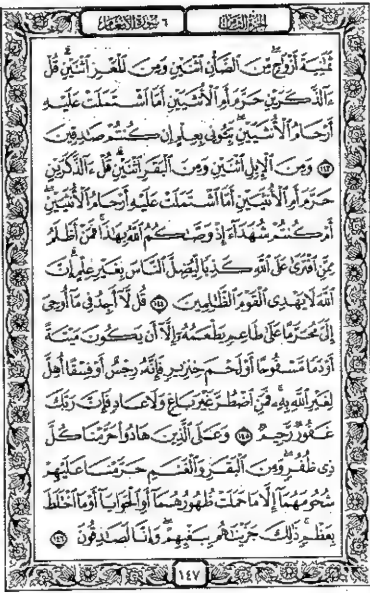 الجزء الثامن ٦ سورة الأنعام
ثَمَٰنِيَةَ أَزْوَٰجٖۖ مِّنَ ٱلضَّأۡنِ ٱثۡنَيۡنِ وَمِنَ ٱلۡمَعۡزِ ٱثۡنَيۡنِۗ قُلۡ
ءَآلذَّكَرَيۡنِ حَرَّمَ أَمِ ٱلۡأُنثَيَيۡنِ أَمَّا ٱشۡتَمَلَتۡ عَلَيۡهِ
أَرۡحَامُ ٱلۡأُنثَيَيۡنِۖ نَبِّـُٔونِي بِعِلۡمٍ إِن كُنتُمۡ صَٰدِقِينَ
١٤٣ وَمِنَ ٱلۡإِبِلِ ٱثۡنَيۡنِ وَمِنَ ٱلۡبَقَرِ ٱثۡنَيۡنِۗ قُلۡ ءَآلذَّكَرَيۡنِ
حَرَّمَ أَمِ ٱلۡأُنثَيَيۡنِ أَمَّا ٱشۡتَمَلَتۡ عَلَيۡهِ أَرۡحَامُ ٱلۡأُنثَيَيۡنِۖ
أَمۡ كُنتُمۡ شُهَدَآءَ إِذۡ وَصَّىٰكُمُ ٱللَّهُ بِهَٰذَاۚ فَمَنۡ أَظۡلَمُ
مِمَّنِ ٱفۡتَرَىٰ عَلَى ٱللَّهِ كَذِبٗا لِّيُضِلَّ ٱلنَّاسَ بِغَيۡرِ عِلۡمٍۚ إِنَّ
ٱللَّهَ لَا يَهۡدِي ٱلۡقَوۡمَ ٱلظَّٰلِمِينَ ١٤٤ قُل لَّآ أَجِدُ فِي مَآ أُوحِيَ
إِلَيَّ مُحَرَّمًا عَلَىٰ طَاعِمٖ يَطۡعَمُهُۥٓ إِلَّآ أَن يَكُونَ مَيۡتَةً
أَوۡ دَمٗا مَّسۡفُوحًا أَوۡ لَحۡمَ خِنزِيرٖ فَإِنَّهُۥ رِجۡسٌ أَوۡ فِسۡقًا أُهِلَّ
لِغَيۡرِ ٱللَّهِ بِهِۦۚ فَمَنِ ٱضۡطُرَّ غَيۡرَ بَاغٖ وَلَا عَادٖ فَإِنَّ رَبَّكَ
غَفُورٞ رَّحِيمٞ ١٤٥ وَعَلَى ٱلَّذِينَ هَادُواْ حَرَّمۡنَا كُلَّ
ذِي ظُفُرٖۖ وَمِنَ ٱلۡبَقَرِ وَٱلۡغَنَمِ حَرَّمۡنَا عَلَيۡهِمۡ
شُحُومَهُمَآ إِلَّا مَا حَمَلَتۡ ظُهُورُهُمَآ أَوِ ٱلۡحَوَايَآ أَوۡ مَا ٱخۡتَلَطَ
بِعَظۡمٖۚ ذَٰلِكَ جَزَيۡنَٰهُم بِبَغۡيِهِمۡۖ وَإِنَّا لَصَٰدِقُونَ ١٤٦
١٤٧